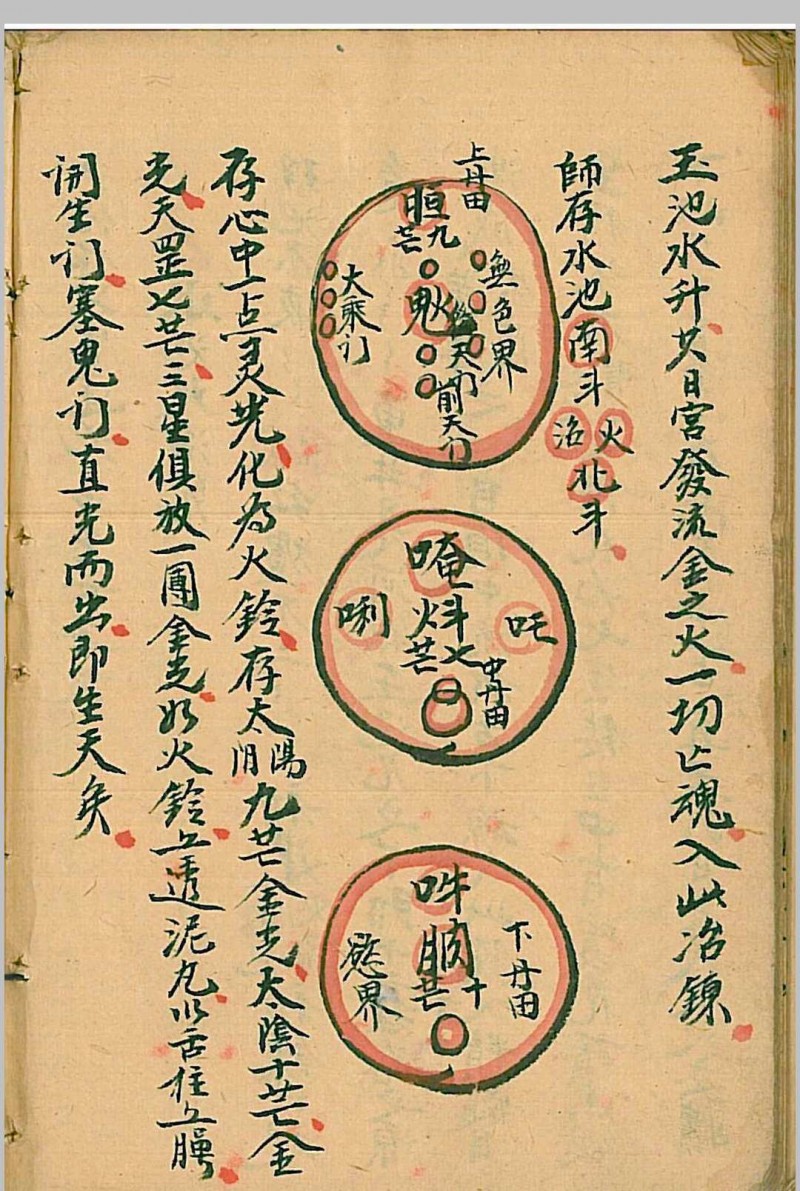 玉池水升廿日宮發流金之火一切亡魂入此冶鍊
師存水池南斗火冶北斗
上丹田
九芒
無色界
大乘门
前天门
唵
唎
吒
七芒
中丹田
吽
十芒
下丹田
慾界
存心中一点灵光化为火鈴存太陽九芒金光太陰十芒金
光天罡七芒三星俱放一團金光如火鈴上透泥丸以舌拄上腭
開生门塞鬼门直光而出即生天矣